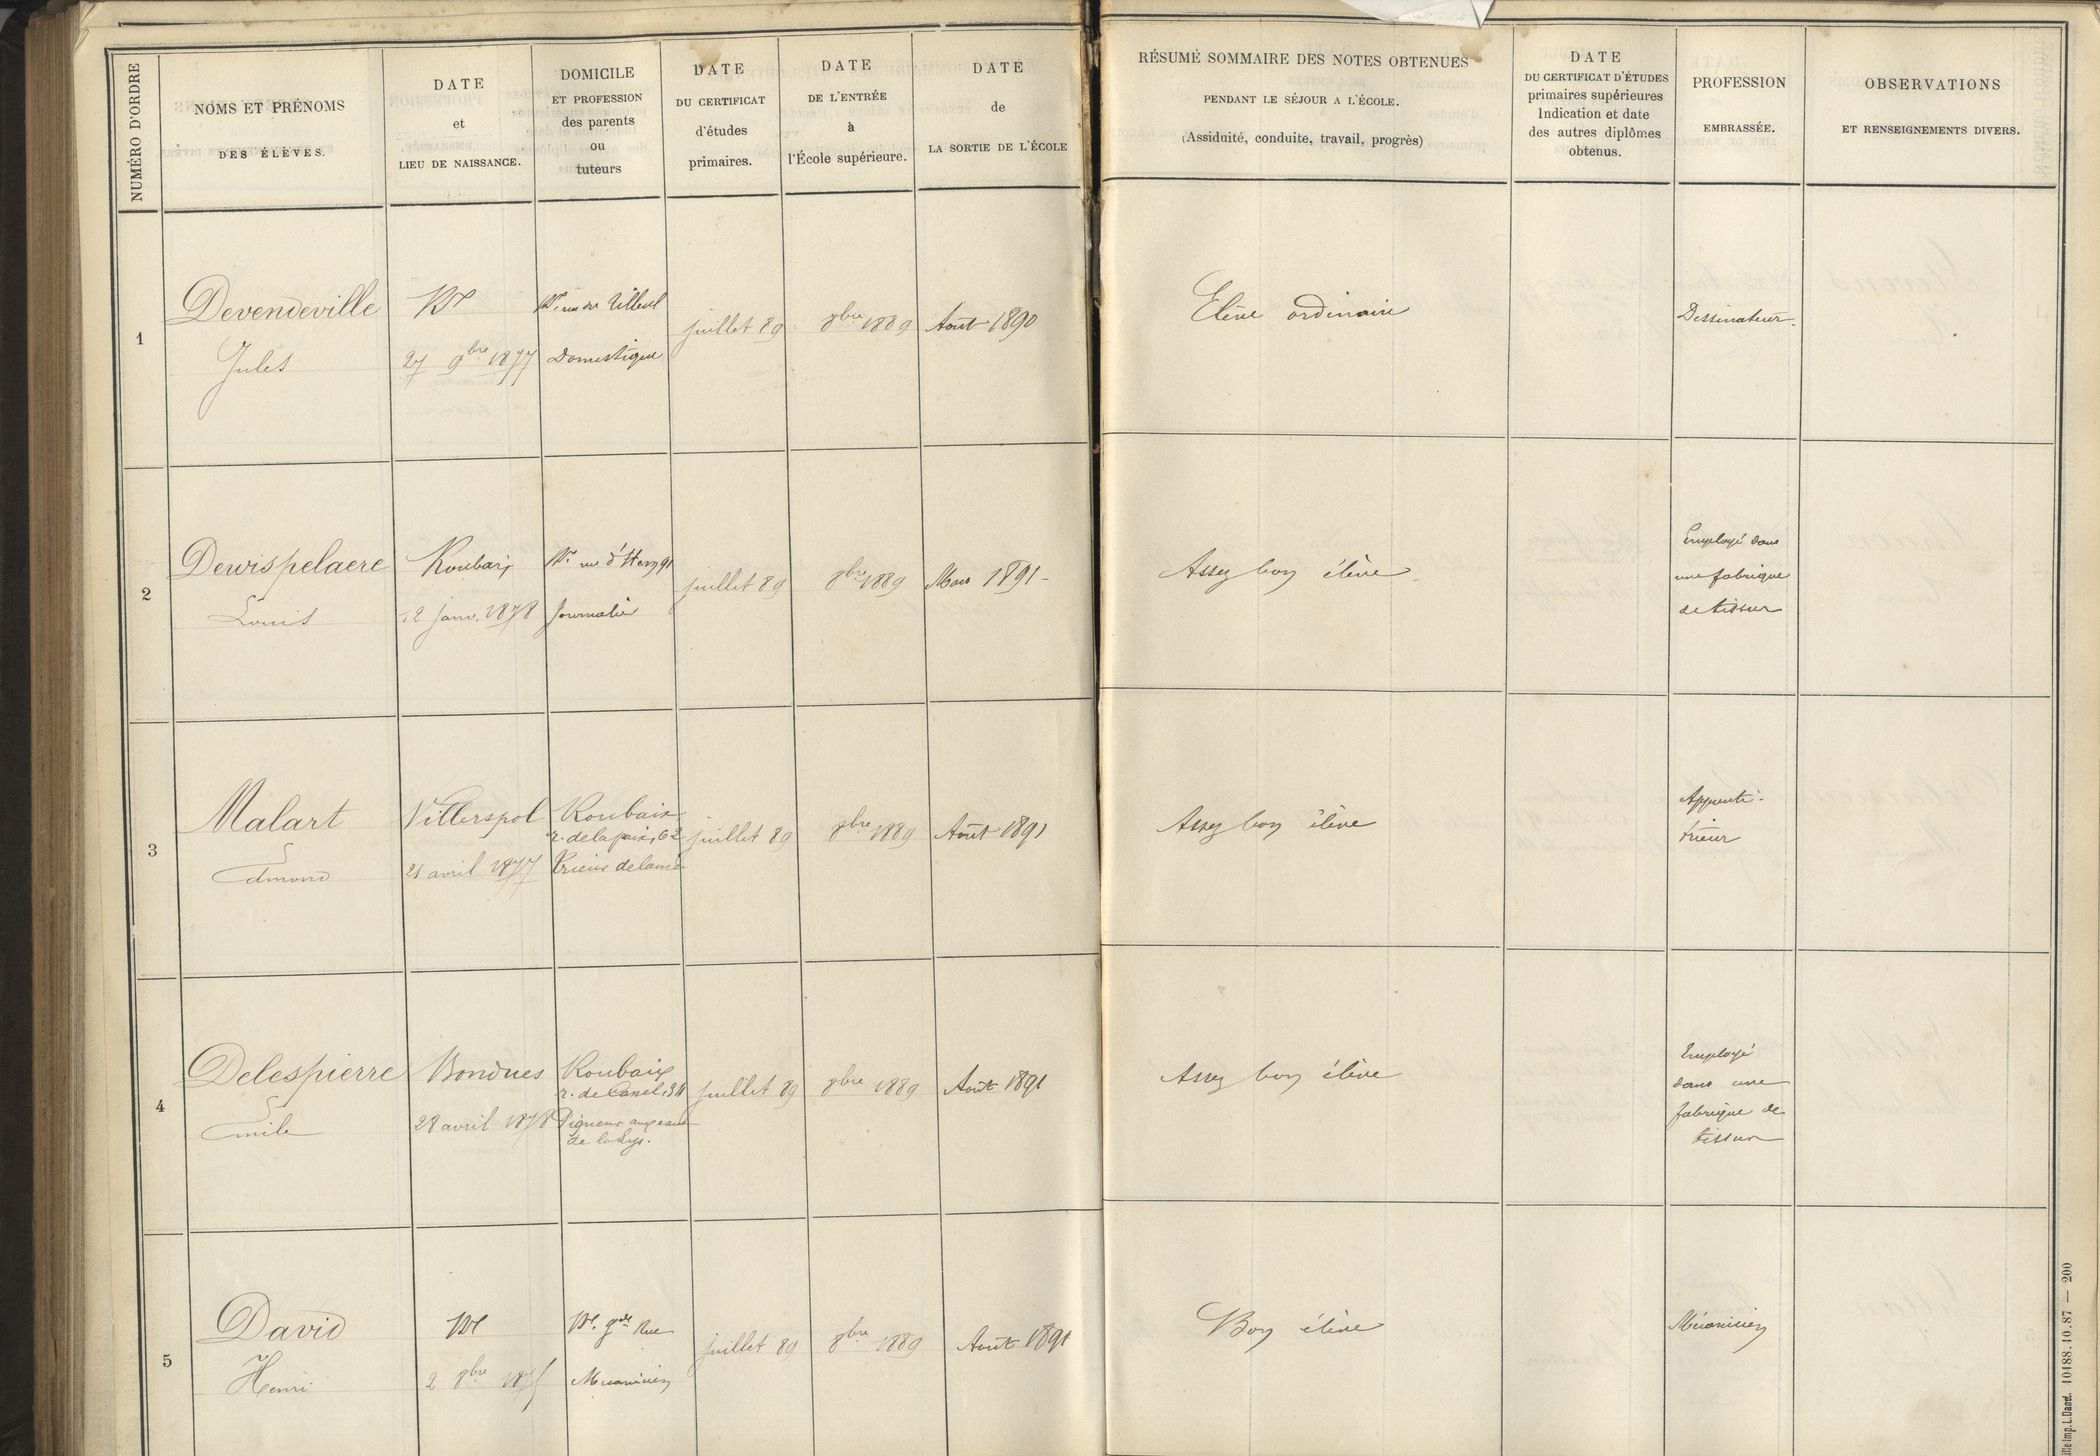 NUMÉRO D'ORDRE
NOMS ET PRÉNOMS
DES ÉLÈVES.
DATE
et
LIEU DE NAISSANCE.
DOMICILE
ET PROFESSION
des parents
ou
tuteurs
DATE
DU CERTIFICAT
d'études
primaires.
DATE
DE L'ENTRÉE
à
l'École supérieure.
DATE
de
LA SORTIE DE L'ÉCOLE
RÉSUMÉ SOMMAIRE DES NOTES OBTENUES
PENDANT LE SÉJOUR A L'ÉCOLE.
(Assiduité, conduite, travail, progrès)
DATE
DU CERTIFICAT D'ÉTUDES
primaires supérieures
Indication et date
des autres diplômes
obtenus.
PROFESSION
EMBRASSÉE.
OBSERVATIONS
ET RENSEIGNEMENTS DIVERS.
1
Devendeville
Jules
27 9bre 1877
rue du Tilleul
Domestique
juillet 89
8bre 1889
Août 1890
Elève ordinaire
Dessinateur.
2
Dewispelaere
Louis
Roubaix
12 janv. 1878
Journalier
juillet 89
8bre 1889
Mars 1891
Assez bon élève
Employé dans
une fabrique
de tissus
3
Malart
Edmond
Villerspol
21 avril 1877
Roubaix
r. de la paix, 62
Trieur de laine
juillet 89
8bre 1889
Août 1891
Assez bon élève
Apprenti
trieur
4
Delespierre
Emile
Bondues
28 avril 1878
Roubaix
Piqueur aux eaux
de la Lys.
juillet 89
8bre 1889
Août 1891
Assez bon élève
Employé
dans une
fabrique de
tissus
5
David
Henri
2 8bre
gde Rue
Mécanicien
juillet 89
8bre 1889
Août 1891
Bon élève
Mécanicien
Imp. L. Danel. 10188.10.87 — 200